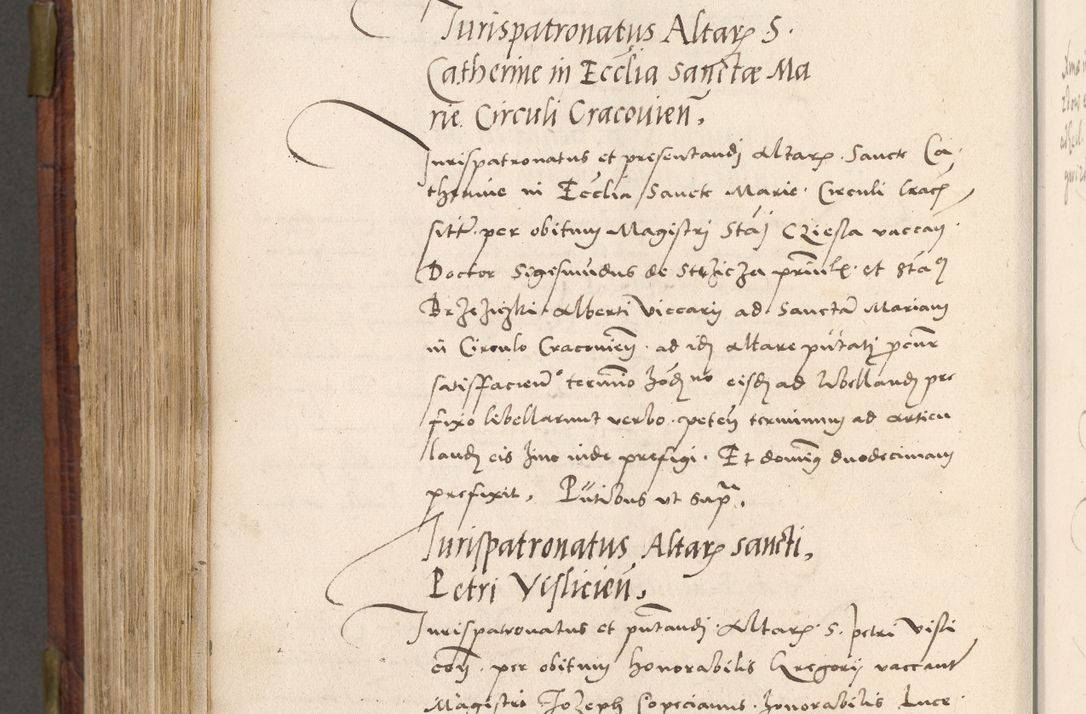 Jurispatronatus Altaris S.
Catherine in Ecclia sanctæ Ma
rie Circuli Cracovien̄,
Jurispatronatus et presentandj Altaris Sancte Ca
therine in Ecclia Sancte Marie Circuli Crac̄
sitt̄ per obitum Magistrj Stāj Cziesla vaccan̄
Doctor Sigismūdus de Stężicza et
Alberti Viccarij ad Sanctā Mariam
in Circulo Cracovien̄ ad idj altare
satisfacien̄ termīo no eisdj ad libellandj pre
fixo libellarunt verbo peten̄ terminum ad articu
landj eis inde prefigi. Et domīg duodecimam
prefixit, ut Supra.
Jurispatronatus Altaris sancti
Petri Vislicien̄,
Jurispatronatus et pn̄tandj Altaris S. petri Visli
cen̄ per obitum honorabilis Gregorij vaccant̄
Magistri Jozeph Copecianus honorabilis Luce